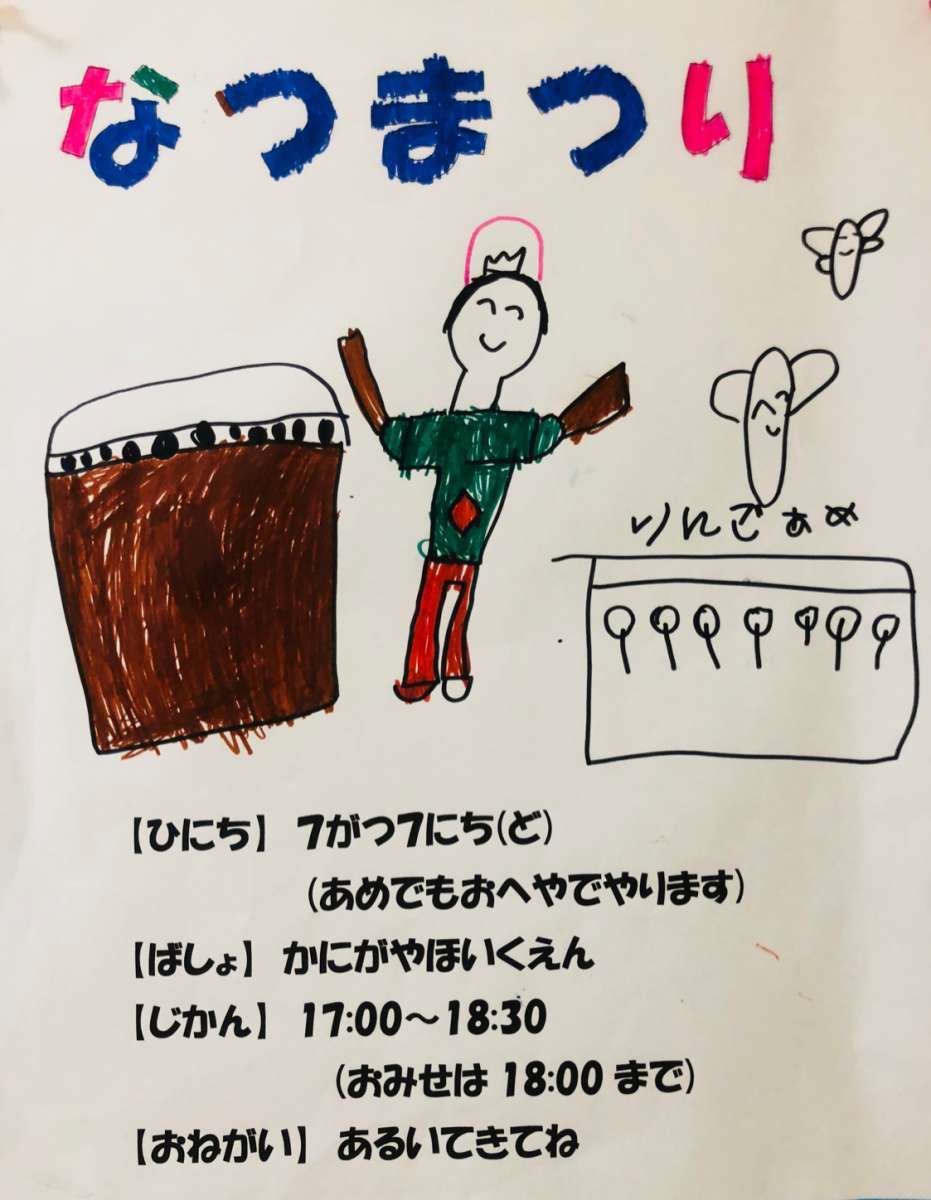 なつまつり
りんごあめ
【ひにち】 7がつ7にち(ど)
(あめでもおへやでやります)
【ばしょ】 かにがやほいくえん
【じかん】 17:00～18:30
(おみせは 18:00 まで)
【おねがい】 あるいてきてね